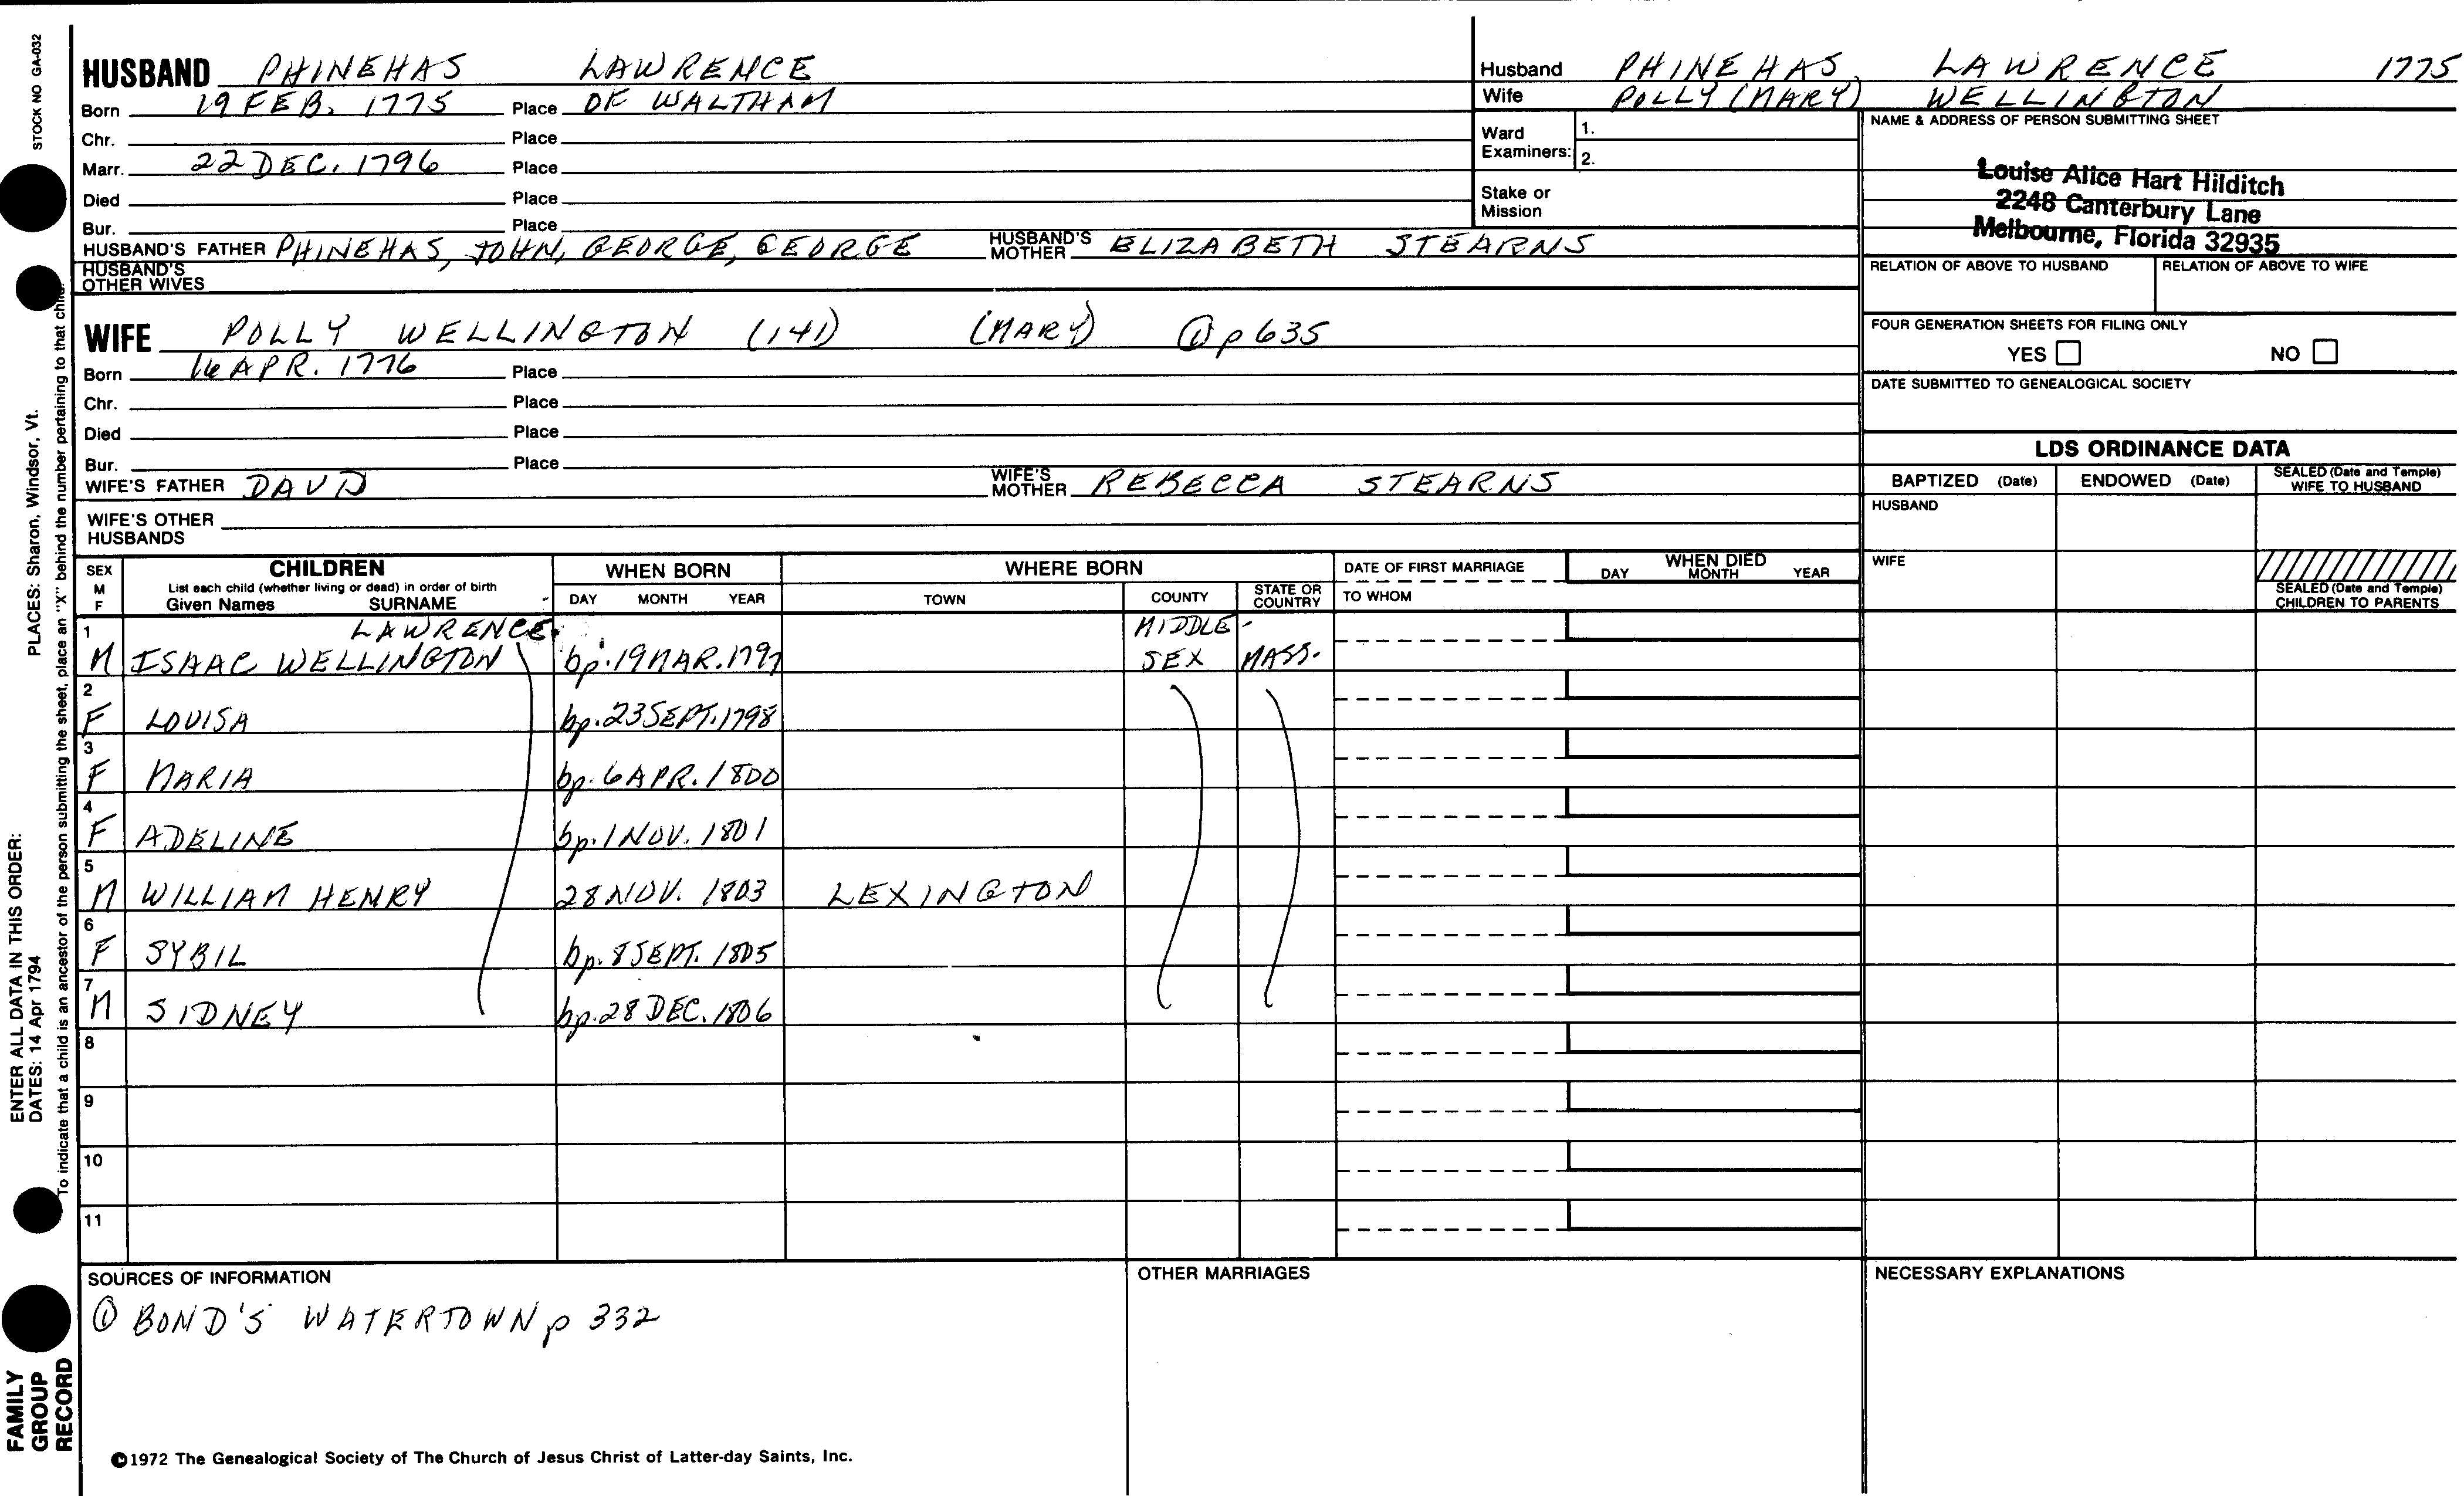 STOCK NO GA-032
PLACES: Sharon, Windsor, Vt.
ENTER ALL DATA IN THIS ORDER:
DATES: 14 Apr 1794
To indicate that a child is an ancestor of the person submitting the sheet, place an "X" behind the number pertaining to that child.
FAMILY
GROUP
RECORD
HUSBAND PHINEHAS LAWRENCE
Born 19 FEB. 1775 Place OF WALTHAM
Chr. Place
Marr. 22 DEC. 1796 Place
Died Place
Bur. Place
HUSBAND'S FATHER PHINEHAS, JOHN, GEORGE, GEORGE HUSBAND'S MOTHER ELIZABETH STEARNS
HUSBAND'S
OTHER WIVES
WIFE POLLY WELLINGTON (141) (MARY) ① p 635
Born 16 APR. 1776 Place
Chr. Place
Died Place
Bur. Place
WIFE'S FATHER DAVID WIFE'S MOTHER REBECCA STEARNS
WIFE'S OTHER
HUSBANDS
Husband PHINEHAS, LAWRENCE 1775
Wife POLLY (MARY) WELLINGTON
Ward
Examiners: 1.
2.
Stake or
Mission
NAME & ADDRESS OF PERSON SUBMITTING SHEET
Louise Alice Hart Hilditch
2248 Canterbury Lane
Melbourne, Florida 32935
RELATION OF ABOVE TO HUSBAND RELATION OF ABOVE TO WIFE
FOUR GENERATION SHEETS FOR FILING ONLY
YES NO
DATE SUBMITTED TO GENEALOGICAL SOCIETY
LDS ORDINANCE DATA
BAPTIZED (Date) ENDOWED (Date) SEALED (Date and Temple)
WIFE TO HUSBAND
HUSBAND
WIFE
SEALED (Date and Temple)
CHILDREN TO PARENTS
SEX
M
F
CHILDREN
List each child (whether living or dead) in order of birth
Given Names SURNAME
WHEN BORN
DAY MONTH YEAR
WHERE BORN
TOWN COUNTY STATE OR COUNTRY
DATE OF FIRST MARRIAGE
TO WHOM
WHEN DIED
DAY MONTH YEAR
1 LAWRENCE MIDDLE-
M ISAAC WELLINGTON bp. 19 MAR. 1797 SEX MASS.
2
F LOUISA bp. 23 SEPT. 1798
3
F MARIA bp. 6 APR. 1800
4
F ADELINE bp. 1 NOV. 1801
5
M WILLIAM HENRY 28 NOV. 1803 LEXINGTON
6
F SYBIL bp. 8 SEPT. 1805
7
M SIDNEY bp. 28 DEC. 1806
8
9
10
11
SOURCES OF INFORMATION
① BOND'S WATERTOWN p 332
OTHER MARRIAGES
NECESSARY EXPLANATIONS
©1972 The Genealogical Society of The Church of Jesus Christ of Latter-day Saints, Inc.